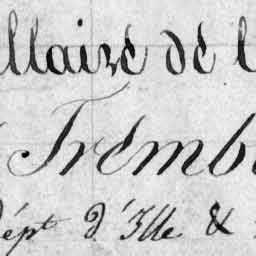 llaire de l
Tremb
Dépt d'Ille &